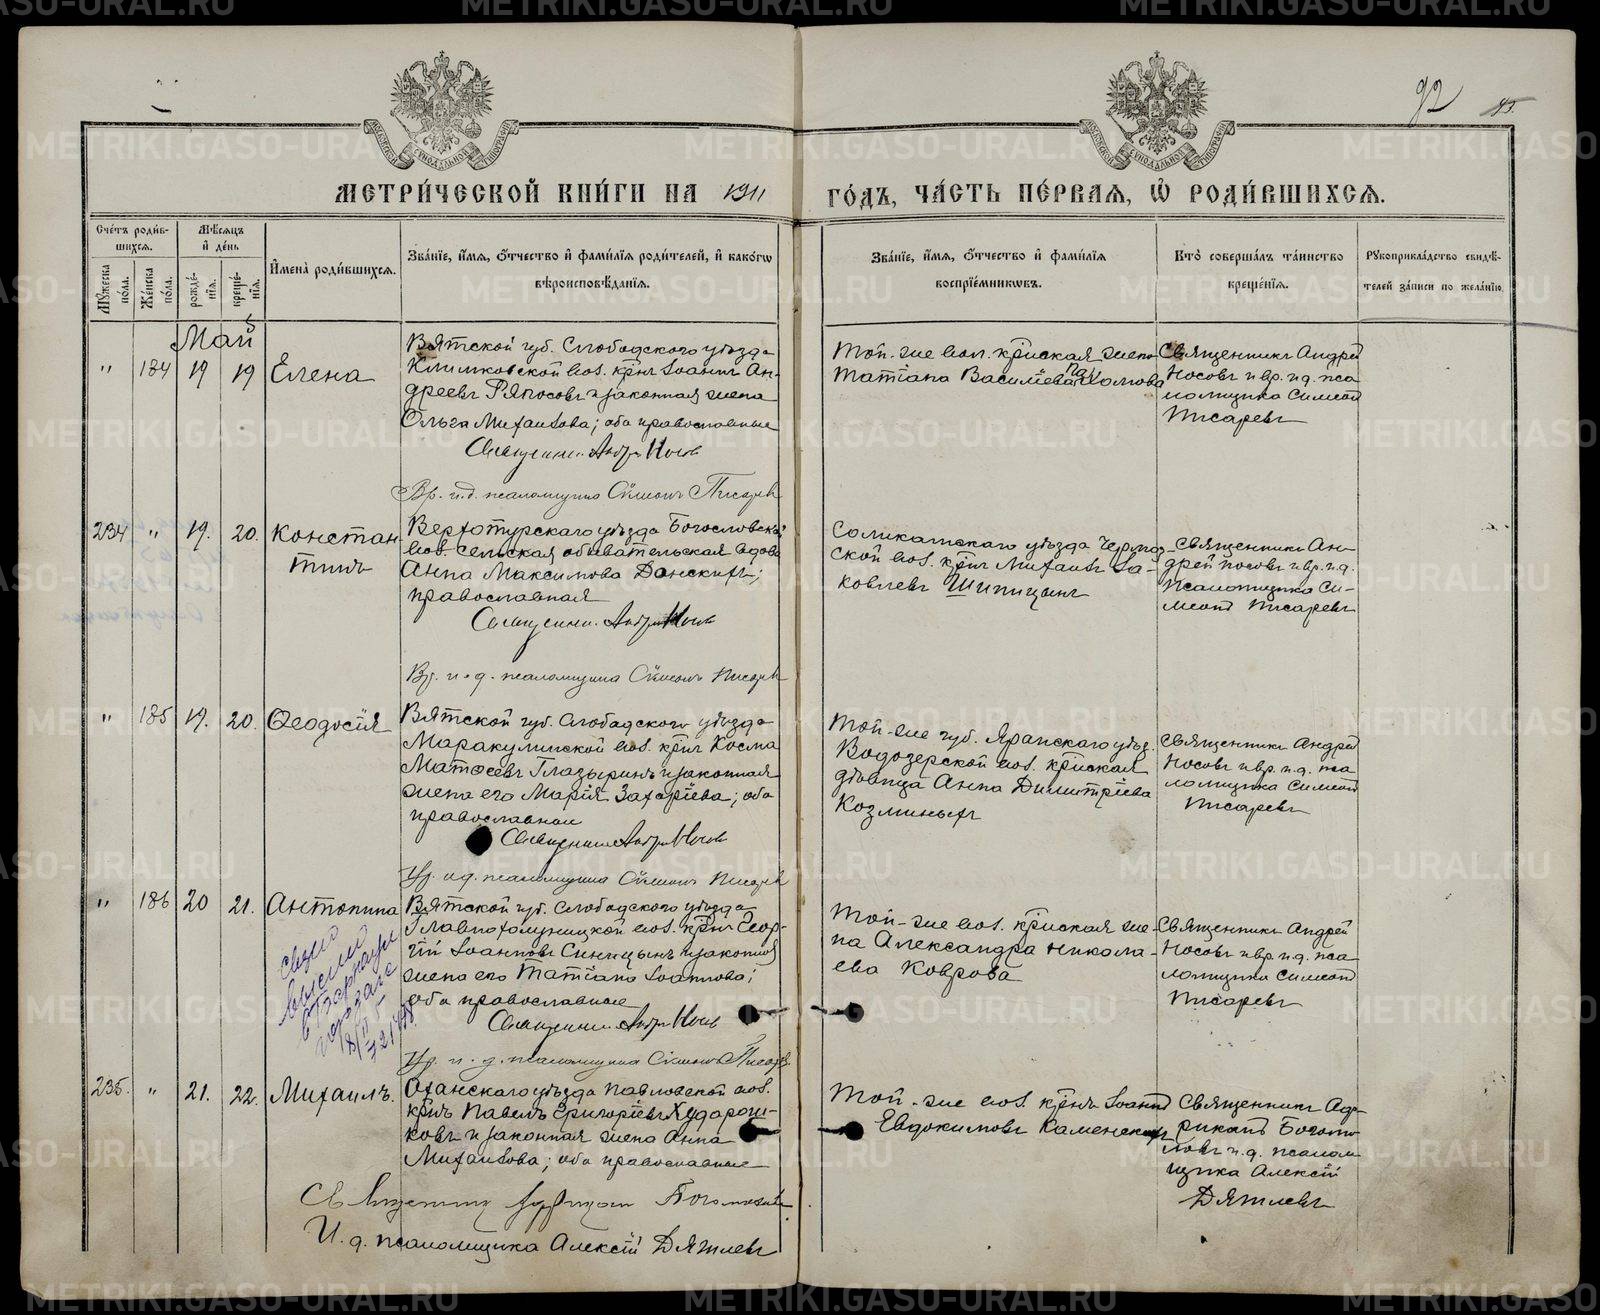 92
МЕТРИ́ЧЕСКОЙ КНИ́ГИ НА 1911 ГО́ДЪ, ЧА́СТЬ ПЕ́РВАЯ, Ѡ҆ РОДИ́ВШИХСЯ.
Сче́тъ роди́вшихся.
Му́жеска по́ла.
Же́нска по́ла.
Мѣ́сяцъ и҆ де́нь
рожде́нїя.
креще́нїя.
И҆мена̀ роди́вшихся.
Зва́нїе, и҆́мя, ѻ҆́тчество и҆ фами́лїя роди́телей, и҆ како́гѡ
вѣроисповѣ́данїя.
Зва́нїе, и҆́мя, ѻ҆́тчество и҆ фами́лїя
воспрїе́мникѡвъ.
Кто̀ соверша́лъ та́инство
креще́нїя.
Рукоприкла́дство свидѣ́-
телей за́писи по жела́нїю.
Май
" 184 19 19 Елена
Вятской губ. Слободского уѣзда
Климковской вол. крнъ Іоаннъ Ан-
дреевъ Ряпосовъ и законная жена
Ольга Михаилова; оба православные
Священникъ Андрей Носовъ
Вр. и.д. псаломщика Сѵмеонъ Писаревъ
Той-же вол. крнская жена
Татіана Василіева
Священникъ Андрей
Носовъ и вр. и.д. пса
ломщика Симеонъ
Писаревъ
234 " 19. 20. Констан
тинъ
Верхотурскаго уѣзда Богословской
вол. сельская обывательская вдова
Анна Максимова Донскихъ;
православная
Священникъ Андрей Носовъ
Вр. и.д. псаломщика Сѵмеонъ Писаревъ
Соликамскаго уѣзда Чермоз-
ской вол. крнъ Михаилъ Іа-
ковлевъ Шипицынъ
Священникъ Ан-
дрей Носовъ и вр. и.д.
псаломщика Си-
меонъ Писаревъ
" 185 19. 20. Ѳеодосія
Вятской губ. Слободского уѣзда
Маракулинской вол. крнъ Косма
Матѳеевъ Глазыринъ и законная
жена его Марія Захаріева; оба
православные
Священникъ Андрей Носовъ
Вр. и.д. псаломщика Сѵмеонъ Писаревъ
Той-же губ. Яранскаго уѣз.
Водозерской вол. крнская
дѣвица Анна Димитріева
Козминыхъ
Священникъ Андрей
Носовъ и вр. и.д. пса
ломщика Симеонъ
Писаревъ
" 186 20 21. Антонина
Вятской губ. Слободского уѣзда
Главнохолуницкой вол. крнъ Геор-
гій Іоанновъ Синицынъ и законная
жена его Татіана Іоаннова;
оба православные
Священникъ Андрей Носовъ
Вр. и.д. псаломщика Сѵмеонъ Писаревъ
Той-же вол. крнская же-
на Александра Никола-
ева Коврова
Священникъ Андрей
Носовъ и вр. и.д. пса
ломщика Симеонъ
Писаревъ
235. " 21. 22. Михаилъ.
Оханскаго уѣзда Павловской вол.
крнъ Павелъ Григоріевъ Худорош-
ковъ и законная жена Анна
Михаилова; оба православные
Священникъ Богомоловъ
И.д. псаломщика Алексій Дятлевъ
Той-же вол. крнъ Іоаннъ
Евдокимовъ Каменскихъ
Священникъ
Богомо
ловъ и.д. псалом
щика Алексій
Дятлевъ
METRIKI.GASO-URAL.RU